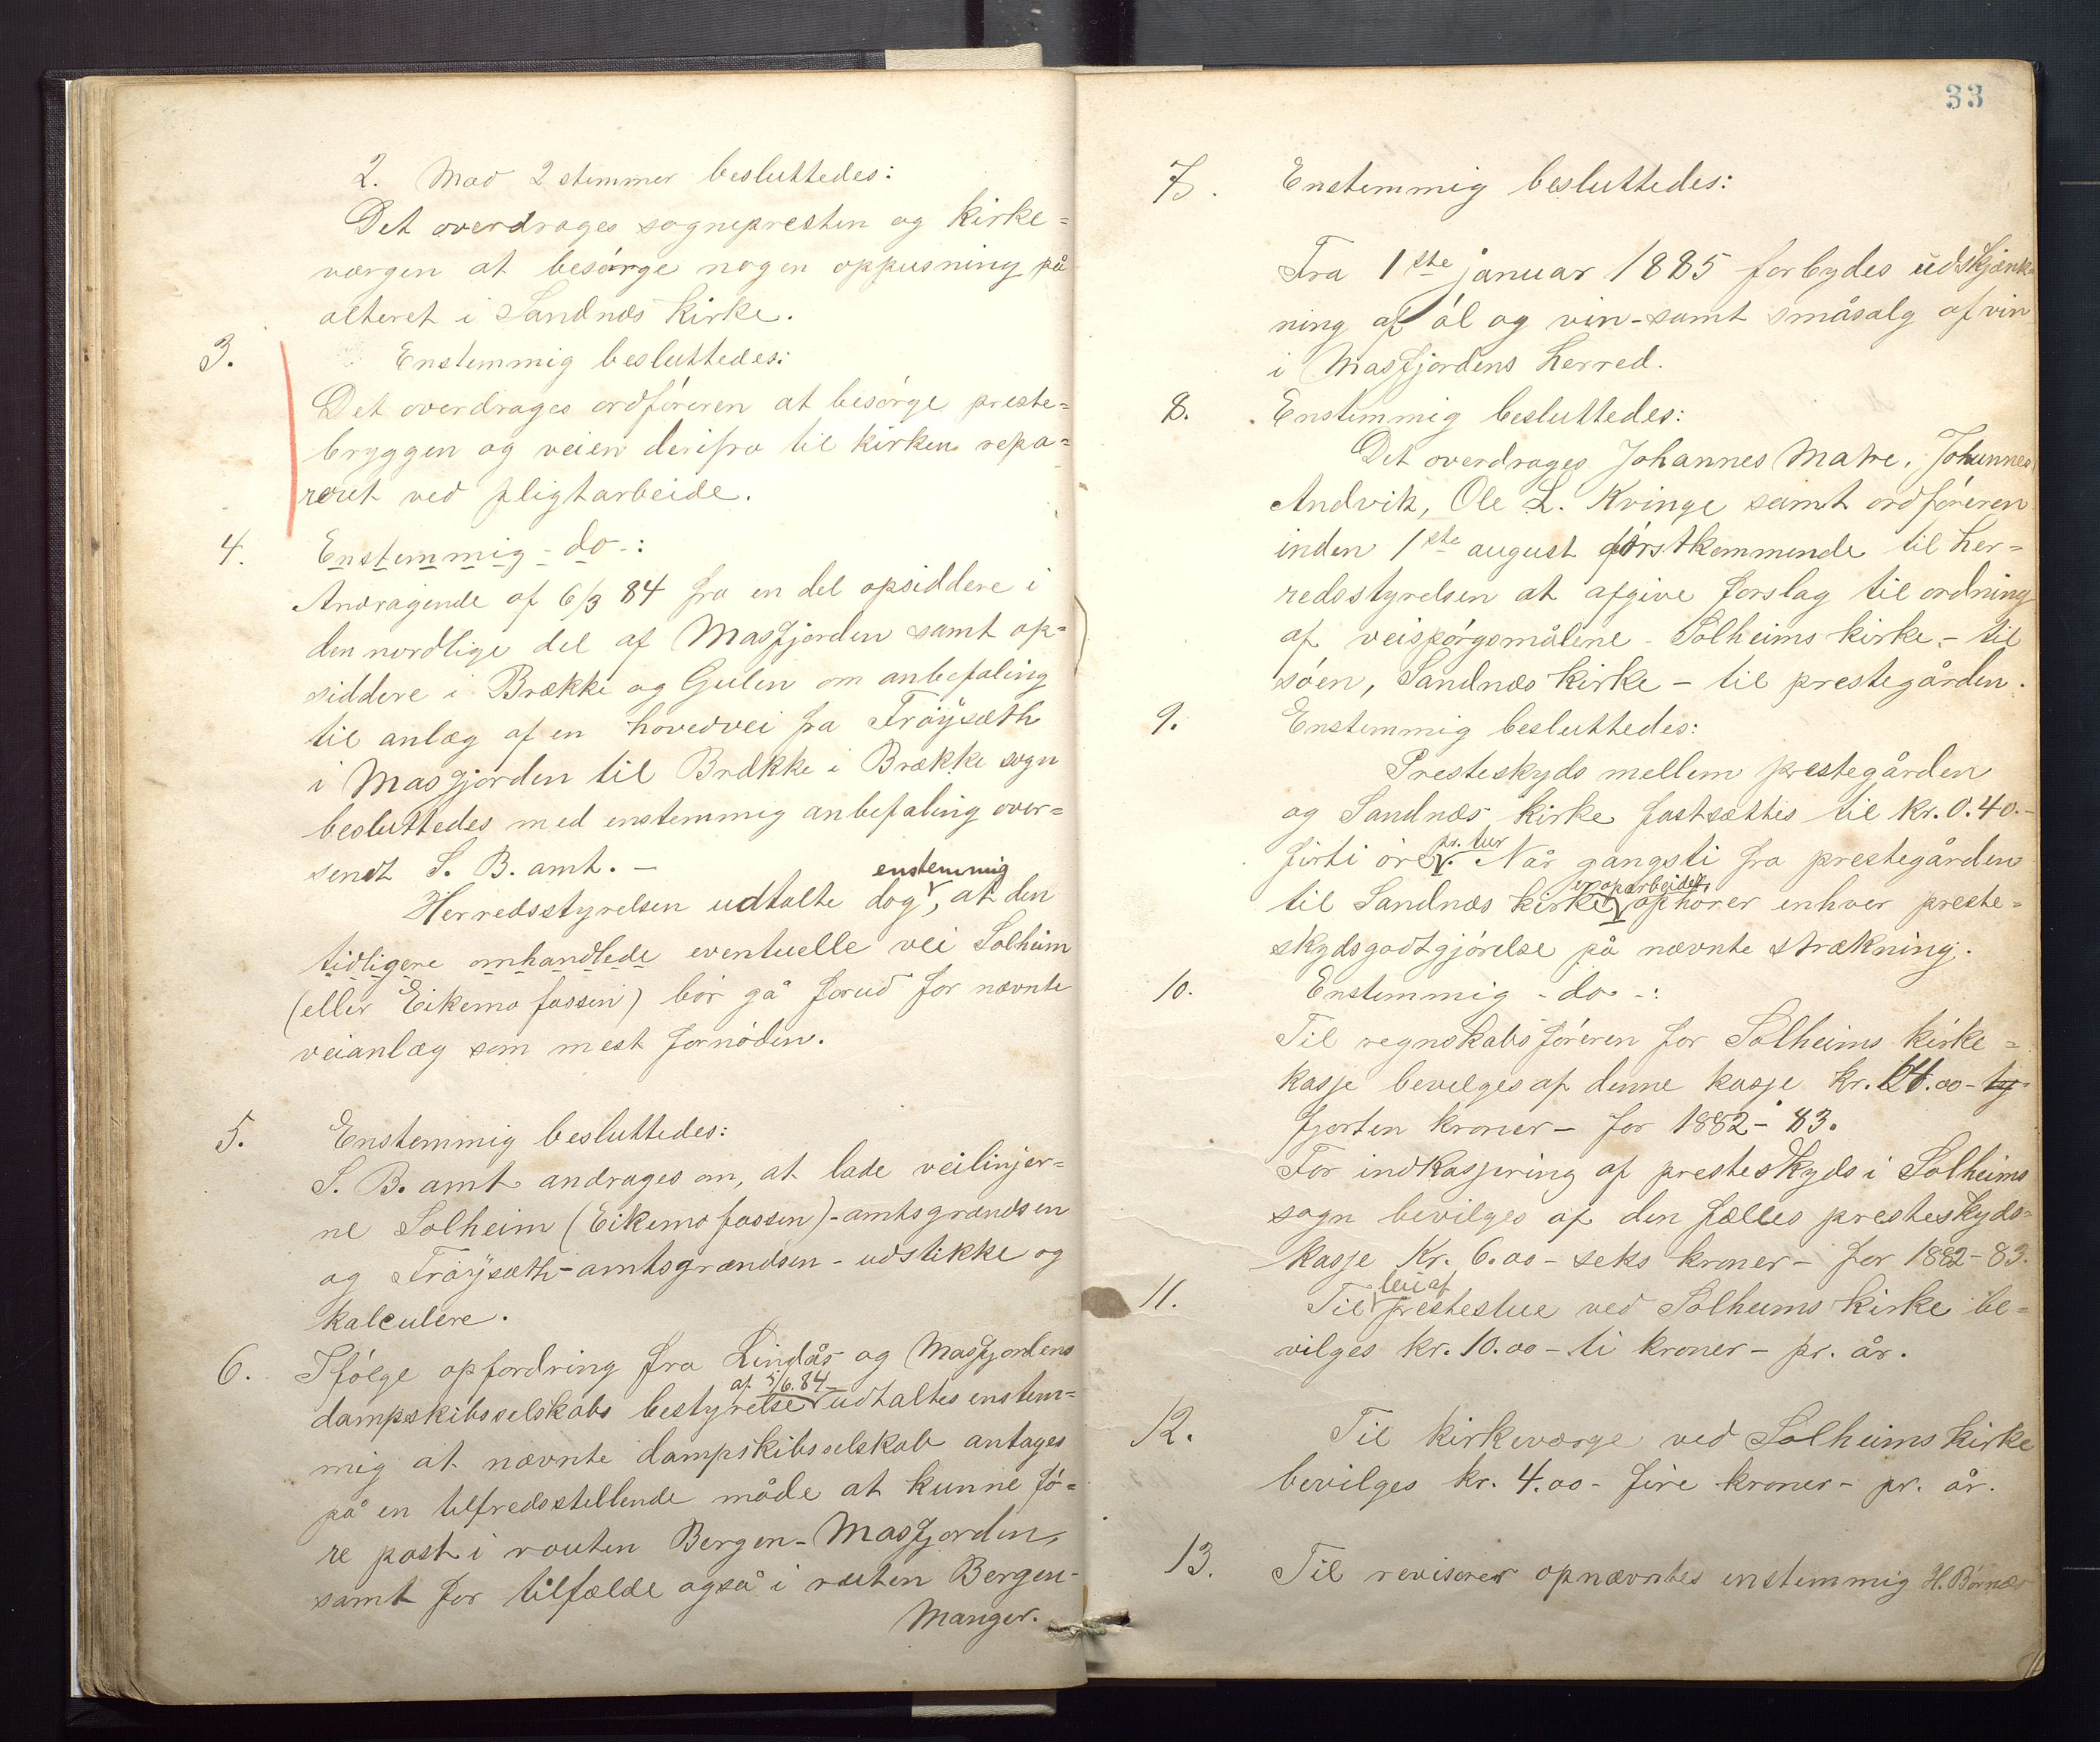 2. Mod 2 stemmer besluttedes:
Det overdrages sognepresten og kirke=
værgen at besórge nogen oppusning på
alteret i Sandnæs kirke.
3. Enstemmig besluttedes:
Det overdrages ordfóreren at besórge preste=
bryggen og veien derifra til kirken repa=
reret ved pligtarbeide.
4. Enstemmig - do -:
Andragende af 6/3 84 fra en del opsiddere i
den nordlige del af Masfjorden samt op=
siddere i Brække og Gulen om anbefaling
til anlæg af en hovedvei fra Fróÿsæth
i Masfjorden til Brække i Brække sogn
besluttedes med enstemmig anbefaling over=
sendt S. B. amt. -
enstemmig
Herredsstyrelsen udtalte dog, at den
tidligere omhandlede eventuelle vei Solheim
(eller Eikemofossen) bór gå forud for nævnte
veianlæg som mest fornóden.
5. Enstemmig besluttedes:
S. B. amt andrages om, at lade veilinjer=
ne Solheim (Eikemofossen) - amtsgrændsen
og Fróÿsæth - amtsgrændsen - udstikke og
kalculere.
6. Ifólge opfordring fra Lindås og Masfjordens
af 5/6. 84
dampskibsselskabs bestyrelse udtaltes enstem=
mig at nævnte dampskibsselskab antages
på en tilfredsstillende måde at kunne fó=
re post i routen Bergen - Masfjorden,
samt for tilfælde også i routen Bergen -
Manger.
33
7. Enstemmig besluttedes:
Fra 1ste januar 1885 forbydes udskjænk=
ning af ól og vin - samt småsalg af vin
i Masfjordens herred.
8. Enstemmig besluttedes:
Det overdrages Johannes Matre, Johannes
Andvik, Ole L. Kvinge samt ordfóreren
inden 1ste august fórstkommende til her=
redsstyrelsen at afgive forslag til ordning
af veispórgsmålene - Solheims kirke - til
sóen, Sandnæs kirke - til prestegården.
9. Enstemmig besluttedes:
Presteskyds mellem prestegården
og Sandnæs kirke fastsættes til kr. 0.40. -
pr. tur
firti óre. Når gangsti fra prestegården
er oparbeidet
til Sandnæs kirke ophórer enhver preste=
skydsgodtgjórelse på nævnte strækning.
10. Enstemmig - do -:
Til regnskabsfóreren for Solheims kirke=
kasse bevilges af denne kasse kr. 14.00 - ty
fjorten kroner - for 1882 - 83.
For indkassering af presteskyds i Solheims
sogn bevilges af den fælles presteskyds=
kasse Kr. 6.00 - seks kroner - for 1882 - 83.
leie af
11. Til prestestue ved Solheims kirke be=
vilges kr. 10.00 - ti kroner - pr. år.
12. Til kirkeværge ved Solheims kirke
bevilges kr. 4.00 - fire kroner - pr. år.
13. Til revisorer opnævntes enstemmig H. Bornæs